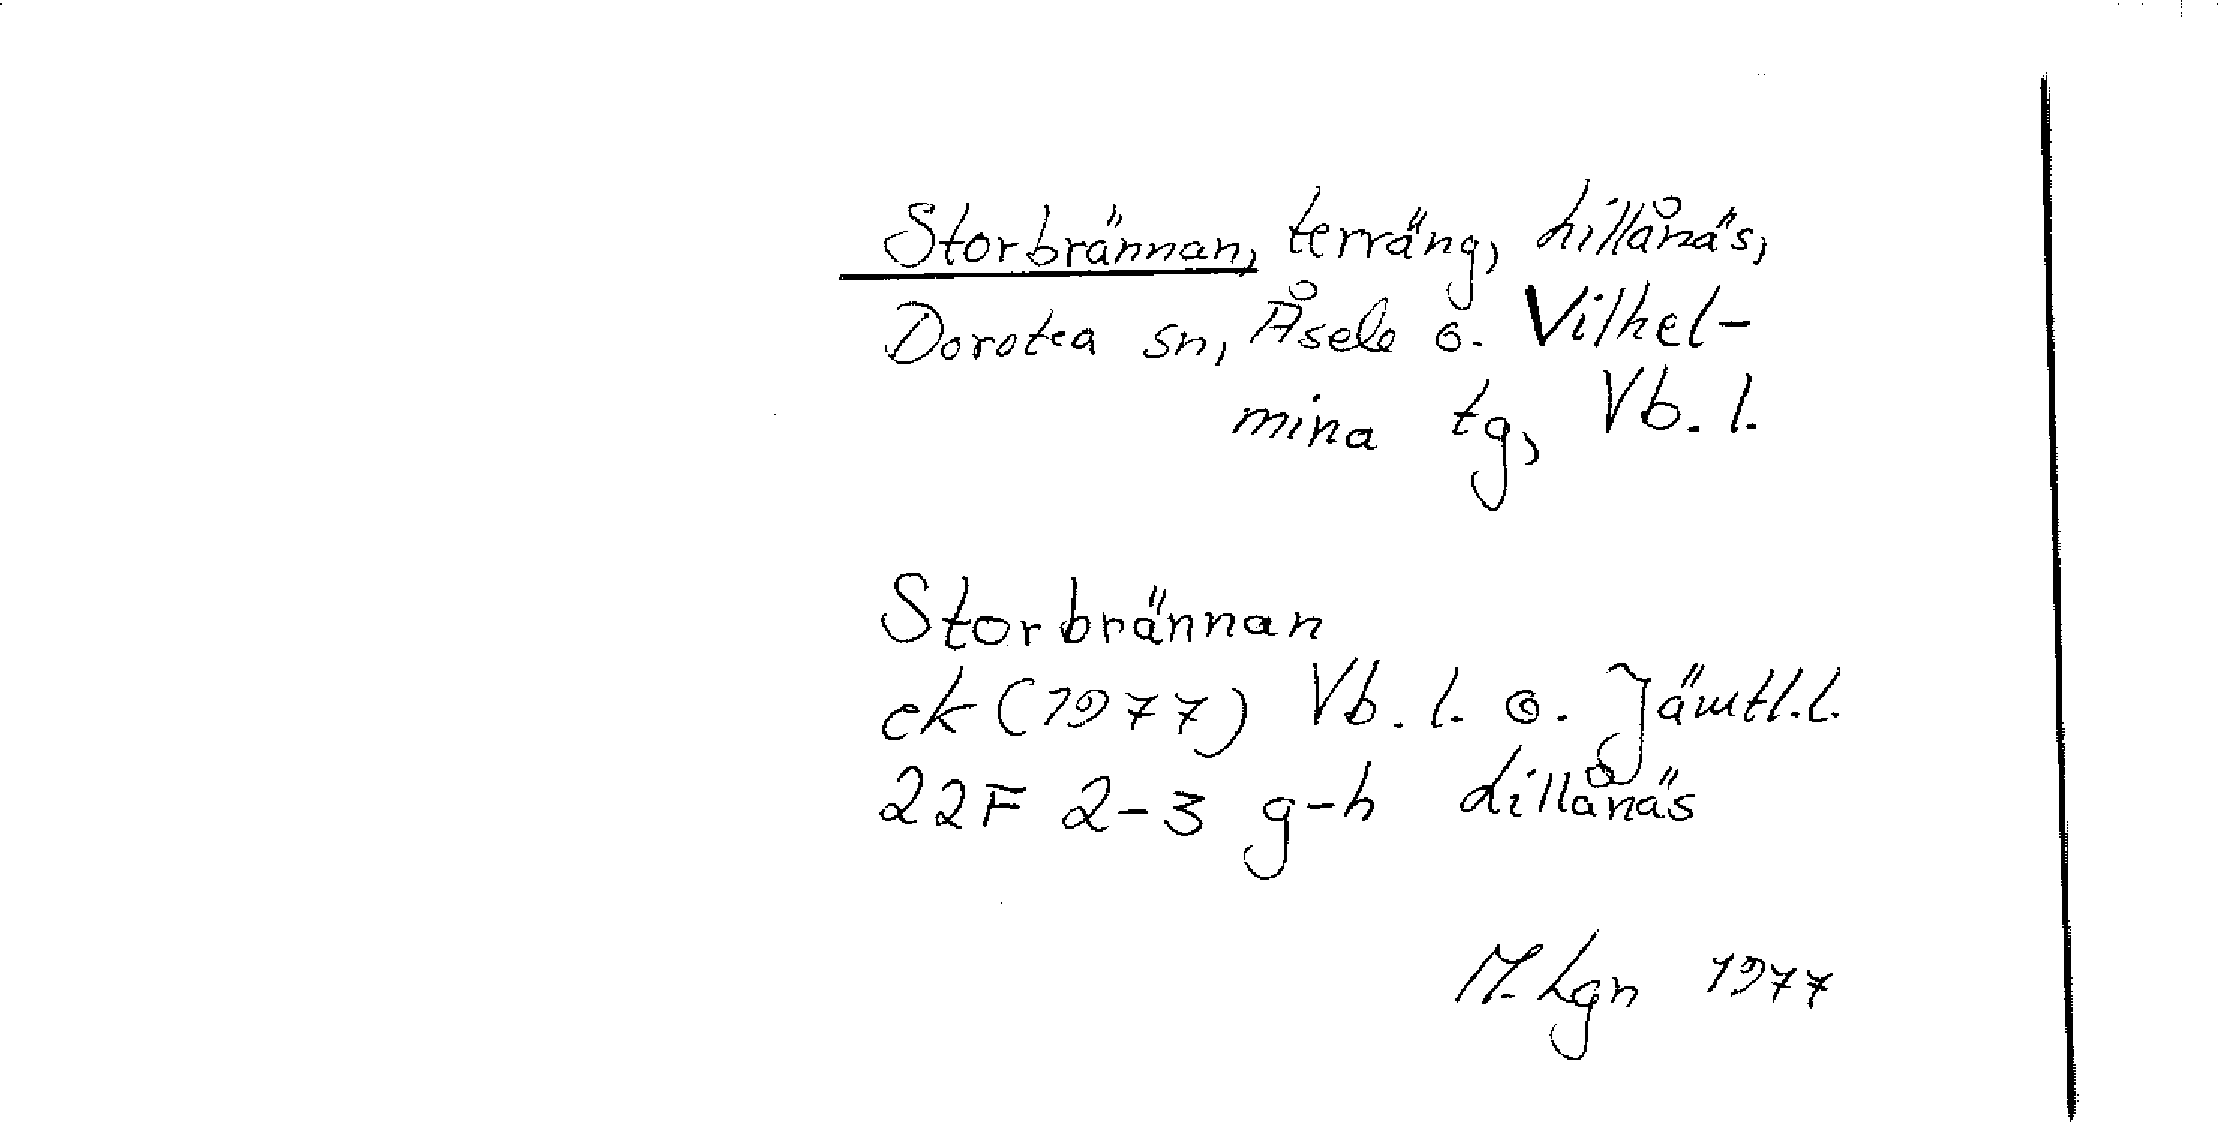 Storbrännan, terräng, Lillånäs,
Dorotea sn, Åsele o. Vilhel-
mina tg, Vb. l.
Storbrännan
ek (1977) Vb. l. o. Jämtl. l.
22F 2-3 g-h Lillånäs
M. Lgn 1977